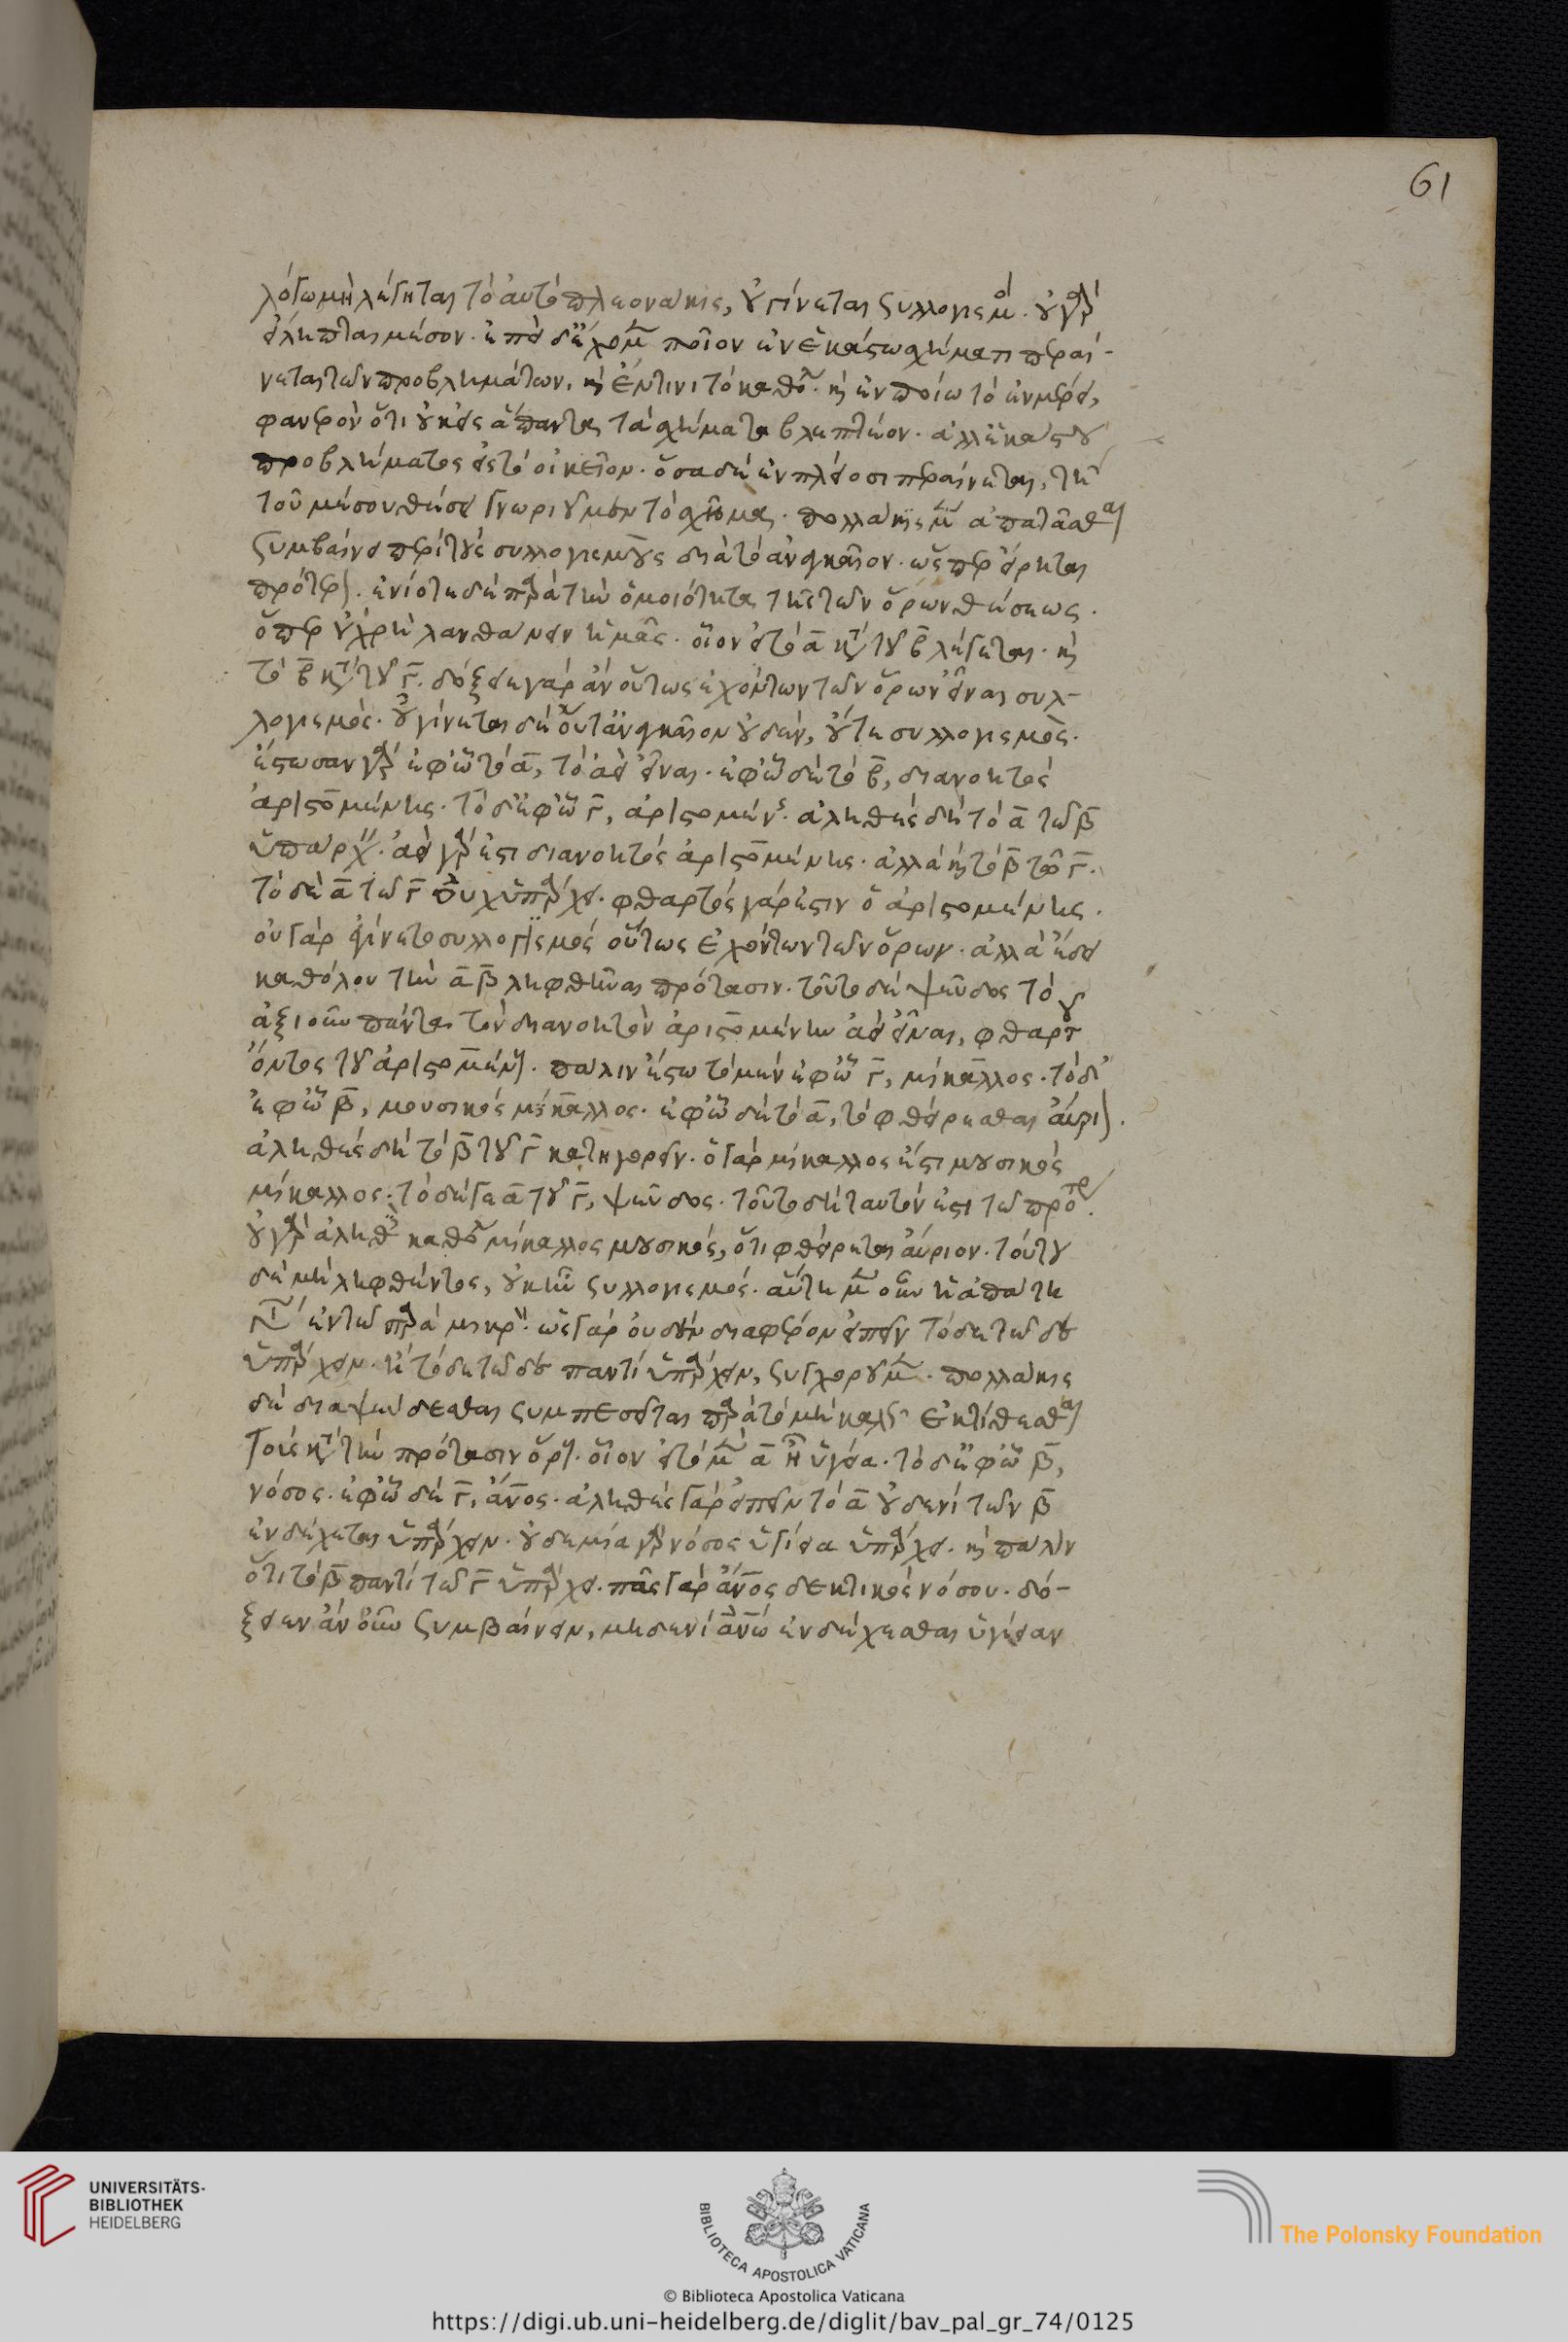 61
λόγω μὴ λέγηται τὸ αὐτὸ πλεονάκις, οὐ γίνεται συλλογισμός. οὐ γὰρ
εἴληπται μέσον. ἐπεὶ δ' ἔχομεν ποῖον ἐν ἑκάστω σχήματι περαί-
νεται τῶν προβλημάτων, καὶ ἐν τίνι τὸ καθόλου. καὶ ἐν ποίω τὸ ἐν μέρει,
φανερὸν ὅτι οὐκ εἰς ἅπαντα τὰ σχήματα βλεπτέον. ἀλλ' ἑκάστου
προβλήματος εἰς τὸ οἰκεῖον. ὅσα δὲ ἐν πλείοσι περαίνεται, τῆ
τοῦ μέσου θέσει γνωριοῦμεν τὸ σχῆμα. πολλάκις μὲν ἀπατᾶσθαι
συμβαίνει περὶ τοὺς συλλογισμοὺς διὰ τὸ ἀναγκαῖον. ὥσπερ εἴρηται
πρότερον. ἐνίοτε δὲ παρὰ τὴν ὁμοιότητα τῆς τῶν ὅρων θέσεως.
ὅπερ οὐ χρὴ λανθάνειν ἡμᾶς. οἷον εἰ τὸ α κατὰ τοῦ β λέγεται. καὶ
τὸ β κατὰ τοῦ γ. δόξειε γὰρ ἂν οὕτως ἐχόντων τῶν ὅρων εἶναι συλ-
λογισμός. οὐ γίνεται δὲ οὔτ' ἀναγκαῖον οὐδέν, οὔτε συλλογισμός.
ἔστωσαν γὰρ ἐφ' ὧ τὸ α, τὸ ἀεὶ εἶναι. ἐφ' ὧ δὲ τὸ β, διανοητὸς
ἀριστομένης. τὸ δ' ἐφ' ὧ γ, ἀριστομένης. ἀληθὲς δὴ τὸ α τῶ β
ὑπάρχειν. ἀεὶ γάρ ἐστι διανοητὸς ἀριστομένης. ἀλλὰ καὶ τὸ β τῶ γ.
τὸ δὲ α τῶ γ οὐχ ὑπάρχει. φθαρτὸς γάρ ἐστιν ὁ ἀριστομένης.
οὐ γὰρ ἐγίνετο συλλογισμὸς οὕτως ἐχόντων τῶν ὅρων. ἀλλὰ ἔδει
καθόλου τὴν α β ληφθῆναι πρότασιν. τοῦτο δὲ ψεῦδος τὸ
ἀξιοῦν πάντα τὸν διανοητὸν ἀριστομένην ἀεὶ εἶναι, φθαρτοῦ
ὄντος τοῦ ἀριστομένους. πάλιν ἔστω τὸ μὲν ἐφ' ὧ γ, μίκκαλλος. τὸ δ'
ἐφ' ὧ β, μουσικὸς μίκκαλλος. ἐφ' ὧ δὲ τὸ α, τὸ φθείρεσθαι αὔριον.
ἀληθὲς δὴ τὸ β τοῦ γ κατηγορεῖν. ὁ γὰρ μίκαλλος ἐστὶ μουσικὸς
μίκαλλος. τὸ δέ γε α τοῦ γ, ψεῦδος. τοῦτο δὴ ταυτόν ἐστι τῶ πρότερον.
οὐ γὰρ ἀληθὲς καθόλου μίκαλλος μουσικός, ὅτι φθείρεται αὔριον. τούτου
δὲ μὴ ληφθέντος, οὐκ ἦν συλλογισμός. αὕτη μὲν οὖν ἡ ἀπάτη
γίνεται ἐν τῶ παρὰ μικρόν. ὡς γὰρ οὐδὲν διαφέρον εἰπεῖν τόδε τῶδε
ὑπάρχειν. ἢ τόδε τῶδε παντὶ ὑπάρχειν, συγχωροῦμεν. πολλάκις
δὲ διαψεύδεσθαι συμπεσεῖται παρὰ τὸ μὴ καλῶς ἐκτίθεσθαι
τοὺς κατὰ τὴν πρότασιν ὅρους. οἷον εἰ τὸ μὲν α εἴη ὑγεία. τὸ δ' ἐφ' ὧ β,
νόσος. ἐφ' ὧ δὲ γ, ἄνος. ἀληθὲς γὰρ εἰπεῖν τὸ α οὐδενὶ τῶν β
ἐνδέχεται ὑπάρχειν. οὐδεμία γὰρ νόσος ὑγίεια ὑπάρχει. καὶ πάλιν
ὅτι τὸ β παντὶ τῶ γ ὑπάρχει. πᾶς γὰρ ἄνος δεκτικὸς νόσου. δό-
ξειεν ἂν οὖν συμβαίνειν, μηδενὶ ἄνω ἐνδέχεσθαι ὑγίειαν
UNIVERSITÄTS-
BIBLIOTHEK
HEIDELBERG
BIBLIOTECA APOSTOLICA VATICANA
The Polonsky Foundation
© Biblioteca Apostolica Vaticana
https://digi.ub.uni-heidelberg.de/diglit/bav_pal_gr_74/0125